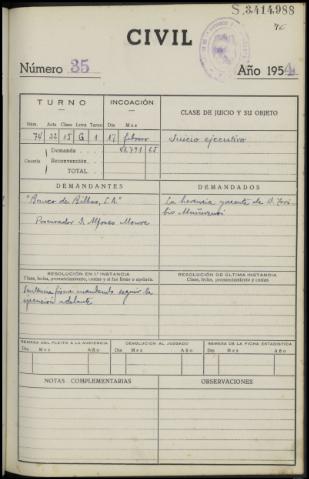 S.3414.988
76
CIVIL
Número 35 Año 1954
TURNO INCOACIÓN CLASE DE JUICIO Y SU OBJETO
Núm. Acta Clase Letra Turno Día Mes
74 22 15 G 1 17 febrero Juicio ejecutivo
Cuantía Demanda
Reconvención
TOTAL
DEMANDANTES DEMANDADOS
"Banco de Bilbao, S.A." La herencia yacente de D.
Procurador D. Alfonso
RESOLUCIÓN EN 1.ª INSTANCIA RESOLUCIÓN DE ÚLTIMA INSTANCIA
Clase, fecha, pronunciamiento, costas y si fue firme o apelada. Clase, fecha, pronunciamiento y costas
Sentencia firme mandando seguir la
ejecución adelante
REMESA DEL PLEITO A LA AUDIENCIA DEVOLUCIÓN AL JUZGADO REMESA DE LA FICHA ESTADÍSTICA
Día Mes Año Día Mes Año Día Mes Año
NOTAS COMPLEMENTARIAS OBSERVACIONES